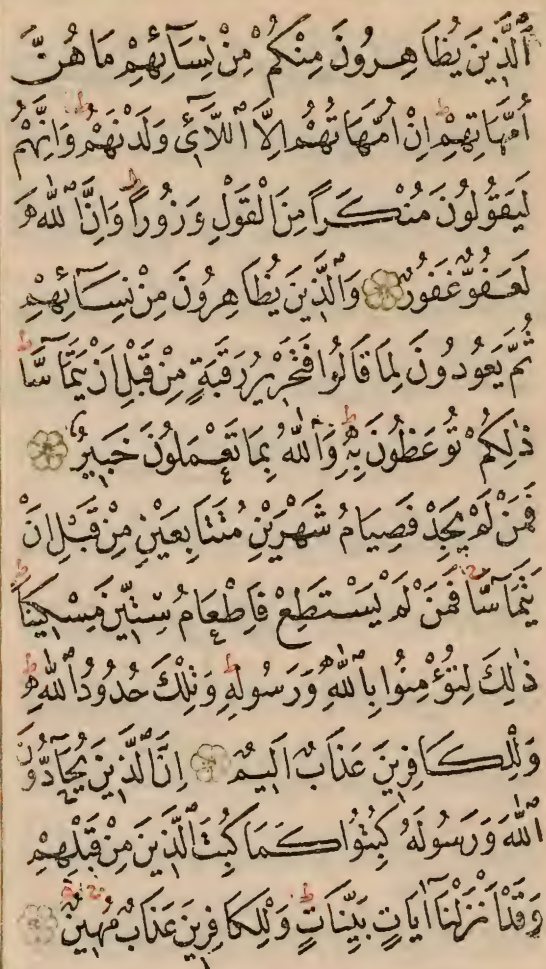 اَلَّذِينَ يُظَاهِرُونَ مِنْكُمْ مِنْ نِسَآئِهِمْ مَا هُنَّ
اُمَّهَاتِهِمْ اِنْ اُمَّهَاتُهُمْ اِلَّا اللَّآئِي وَلَدْنَهُمْ وَاِنَّهُمْ
لَيَقُولُونَ مُنْكَرًا مِنَ الْقَوْلِ وَزُورًا وَاِنَّ اللّٰهَ
لَعَفُوٌّ غَفُورٌ وَالَّذِينَ يُظَاهِرُونَ مِنْ نِسَآئِهِمْ
ثُمَّ يَعُودُونَ لِمَا قَالُوا فَتَحْرِيرُ رَقَبَةٍ مِنْ قَبْلِ اَنْ يَتَمَآسَّا
ذٰلِكُمْ تُوعَظُونَ بِهِ وَاللّٰهُ بِمَا تَعْمَلُونَ خَبِيرٌ
فَمَنْ لَمْ يَجِدْ فَصِيَامُ شَهْرَيْنِ مُتَتَابِعَيْنِ مِنْ قَبْلِ اَنْ
يَتَمَآسَّا فَمَنْ لَمْ يَسْتَطِعْ فَاِطْعَامُ سِتِّينَ مِسْكِينًا
ذٰلِكَ لِتُؤْمِنُوا بِاللّٰهِ وَرَسُولِهِ وَتِلْكَ حُدُودُ اللّٰهِ
وَلِلْكَافِرِينَ عَذَابٌ اَلِيمٌ اِنَّ الَّذِينَ يُحَآدُّونَ
اللّٰهَ وَرَسُولَهُ كُبِتُوا كَمَا كُبِتَ الَّذِينَ مِنْ قَبْلِهِمْ
وَقَدْ اَنْزَلْنَا اٰيَاتٍ بَيِّنَاتٍ وَلِلْكَافِرِينَ عَذَابٌ مُهِينٌ